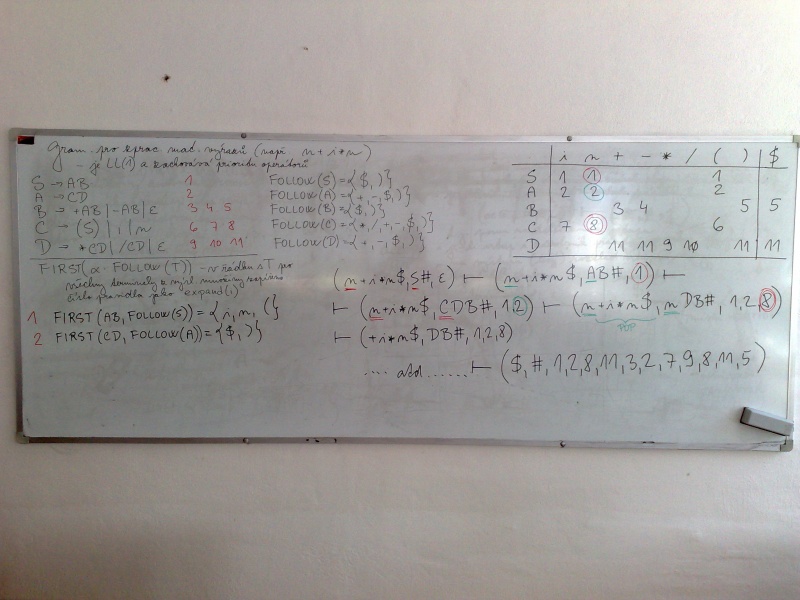 Gram. pro zprac. mat. výrazů (např. n+i*n)
- je LL(1) a zachovává prioritu operátorů
S → AB 1 FOLLOW(S) = {$,)}
A → CD 2 FOLLOW(A) = {+,-,$,)}
B → +AB | -AB | ε 3 4 5 FOLLOW(B) = {$,)}
C → (S) | i | n 6 7 8 FOLLOW(C) = {*,/,+,-,$,)}
D → *CD | /CD | ε 9 10 11 FOLLOW(D) = {+,-,$,)}
i n + - * / ( ) $
S 1 1 1
A 2 2 2
B 3 4 5 5
C 7 8 6
D 11 11 9 10 11 11
FIRST(α · FOLLOW(T)) - v řádku s T pro
všechny terminály z
číslo pravidla jako expand(i)
1 FIRST(AB, FOLLOW(S)) = {i, n, (}
2 FIRST(CD, FOLLOW(A)) = {$,)}
(n+i*n$, S#, ε) ⊢ (n+i*n$, AB#, 1) ⊢
⊢ (n+i*n$, CDB#, 1,2) ⊢ (n+i*n$, nDB#, 1,2,8)
POP
⊢ (+i*n$, DB#, 1,2,8)
.... atd ....... ⊢ ($, #, 1,2,8,11,3,2,7,9,8,11,5)